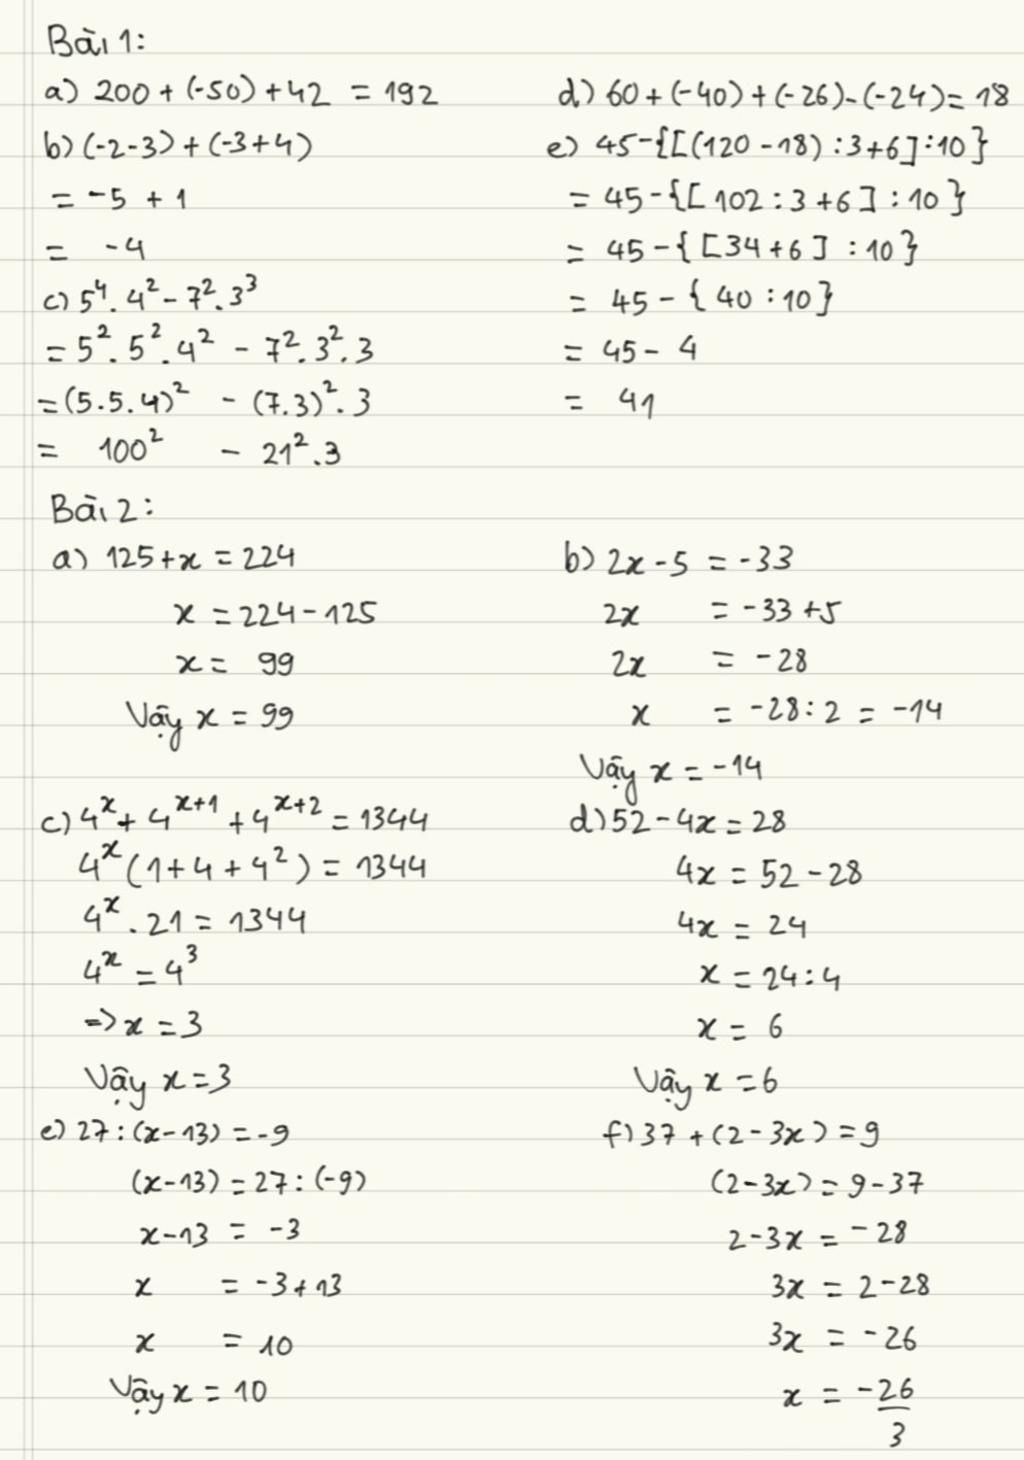 Bài 1:
a) 200 + (-50) + 42 = 192
b) (-2-3) + (-3+4)
= -5 + 1
= -4
c) 5⁴. 4² - 7². 3³
= 5². 5². 4² - 7². 3². 3
= (5.5.4)² - (7.3)². 3
= 100² - 21². 3
d) 60 + (-40) + (-26) - (-24) = 18
e) 45 - {[(120 - 18) : 3 + 6] : 10}
= 45 - {[102 : 3 + 6] : 10}
= 45 - {[34 + 6] : 10}
= 45 - {40 : 10}
= 45 - 4
= 41
Bài 2:
a) 125 + x = 224
x = 224 - 125
x = 99
Vậy x = 99
b) 2x - 5 = -33
2x = -33 + 5
2x = -28
x = -28 : 2 = -14
Vậy x = -14
c) 4ˣ + 4ˣ⁺¹ + 4ˣ⁺² = 1344
4ˣ (1 + 4 + 4²) = 1344
4ˣ . 21 = 1344
4ˣ = 4³
=> x = 3
Vậy x = 3
d) 52 - 4x = 28
4x = 52 - 28
4x = 24
x = 24 : 4
x = 6
Vậy x = 6
e) 27 : (x - 13) = -9
(x - 13) = 27 : (-9)
x - 13 = -3
x = -3 + 13
x = 10
Vậy x = 10
f) 37 + (2 - 3x) = 9
(2 - 3x) = 9 - 37
2 - 3x = -28
3x = 2 - 28
3x = -26
x = -26/3